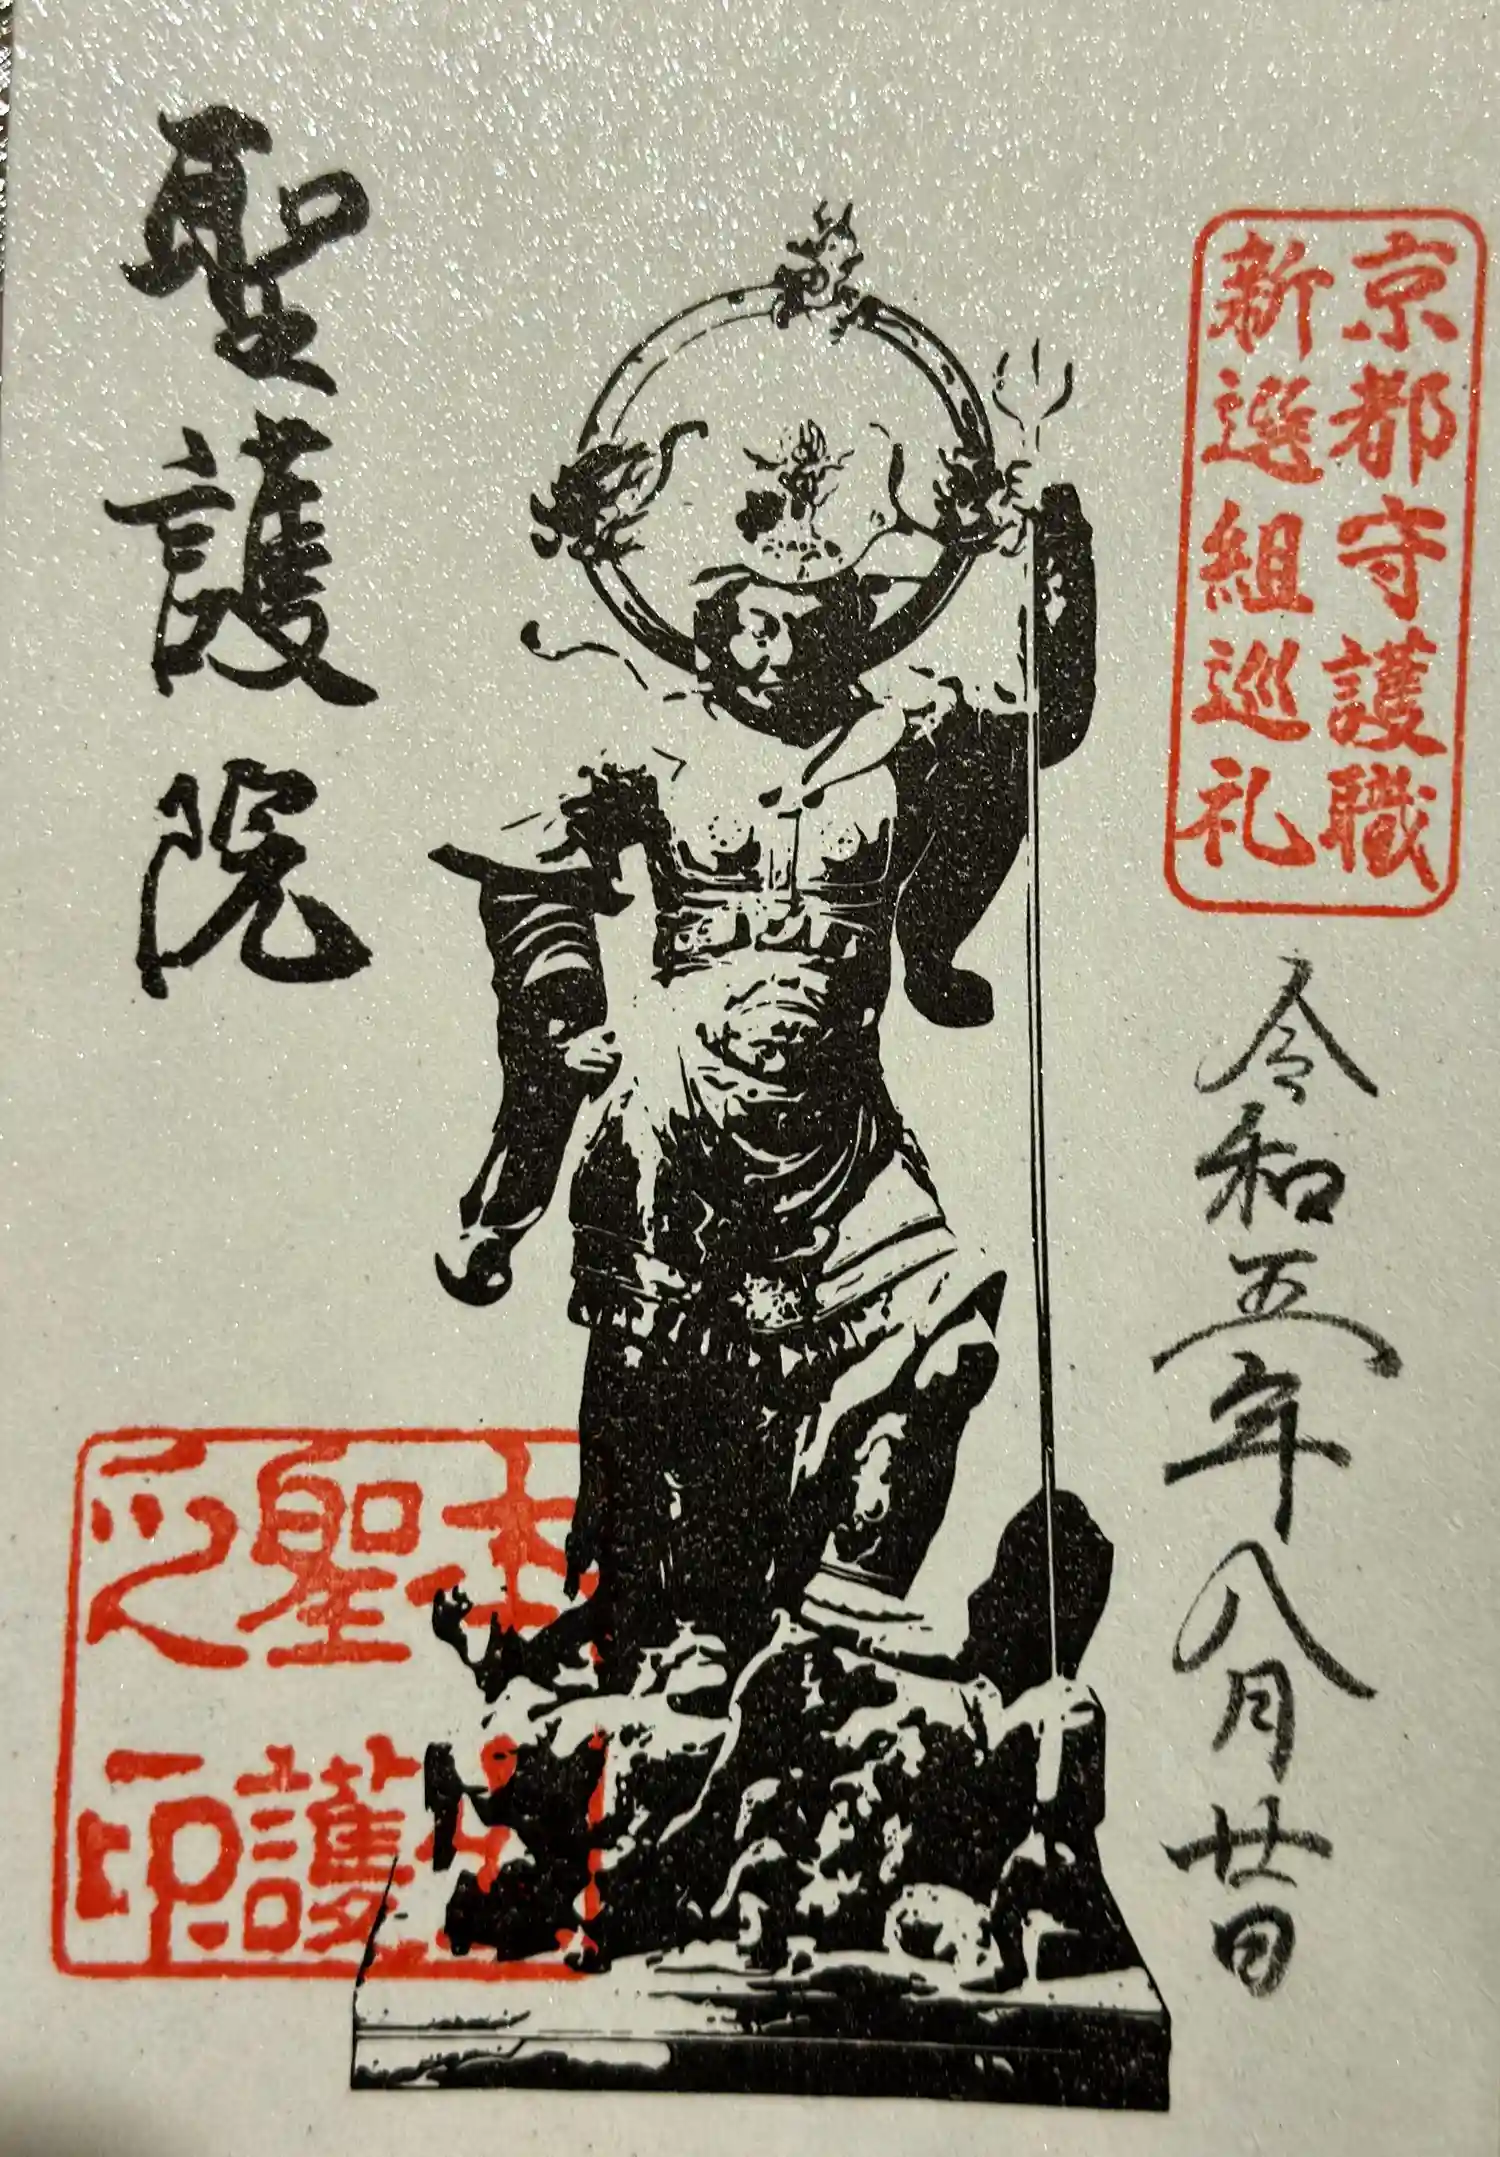 京都守護職
新選組巡礼
令和五年八月廿日
聖護院
本山
聖護
之印